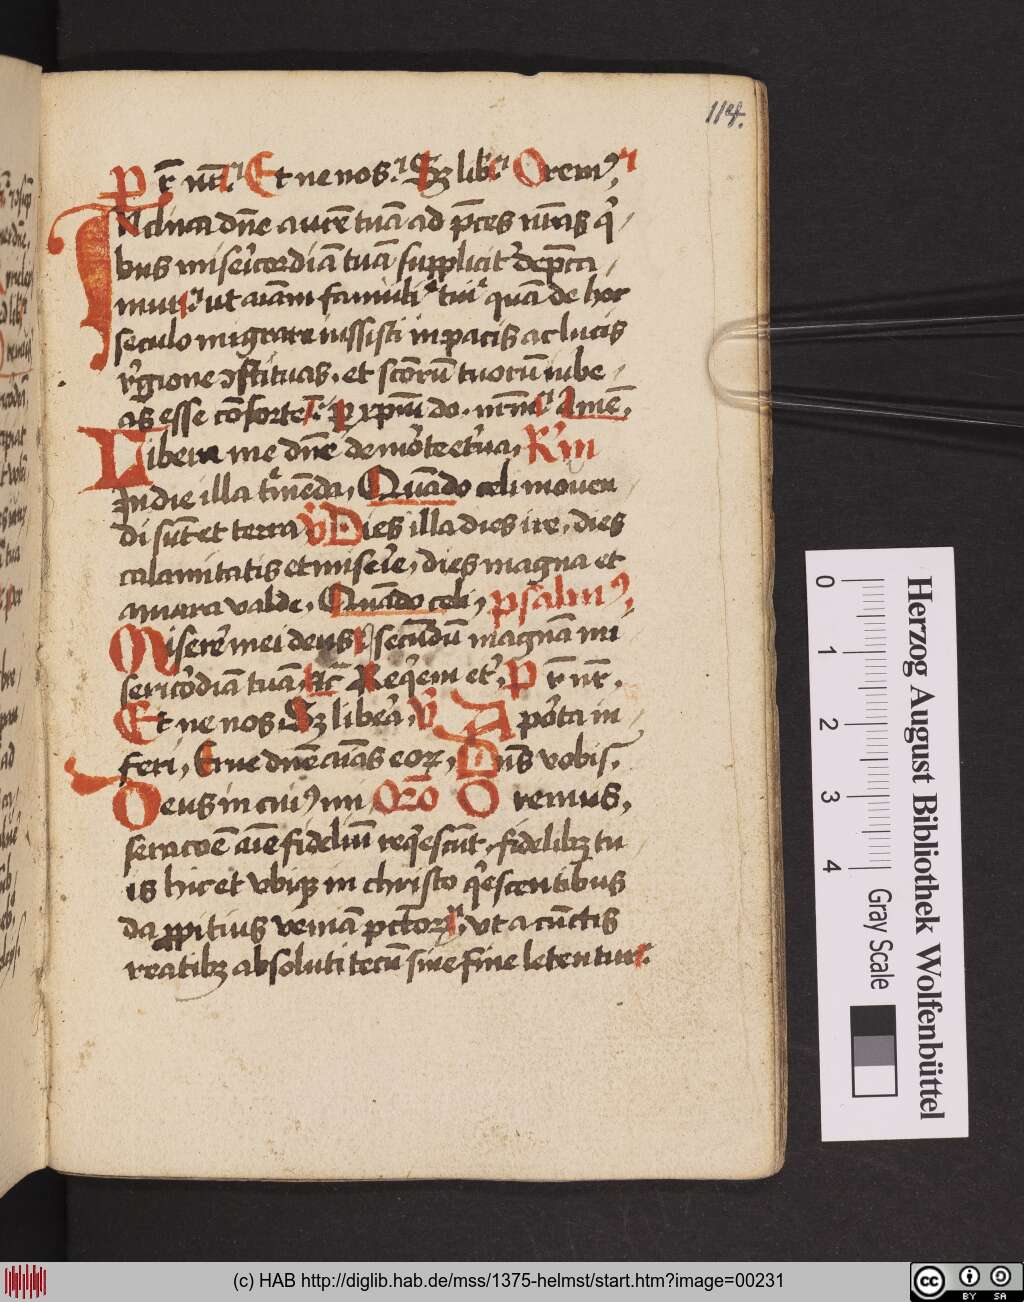 114.
Pr̄ nr̄ Et ne nos. Sꝫ lib̄ Oremꝰ,
Inclina dn̄e aurē tuā ad p̄ces nr̄as qͥ
bus misericordiā tuā supplicit͛ dep̄ca
mur. ut aīam famuli tui quā de hoc
seculo migrare iussisti in pacis ac lucis
regione ꝯstituas. et sctōrū tuorū iube
as esse cōsorte. p xp̄m do. nr̄m Amē.
Libera me dn̄e de morte et͛na, R͛m
In die illa tͤmēda, Quādo celi mouen
di sūt et terra V Dies illa dies ire, dies
calamitatis et miserie, dies magna et
amara valde, Quādo celi, psalmꝰ,
Miserer͛ mei deus secūdū magnā mi
sericordiā tuā, Reqͥem et͛, Pr̄ nr̄.
Et ne nos. Sꝫ libera, V A porta in
feri, Erue dn̄e aīas eorꝝ, Dn̄s vobis.
Deus in cuiꝰ mi Oro Oremus,
seracoē aīe fideliū reqͥescūt, fidelibꝫ tu
is hic et vbiqꝫ in christo qͥescentibus
da ꝓpitius veniā pctōrꝝ, vt a cūctis
reatibꝫ absoluti tecū sine fine letentur.
Herzog August Bibliothek Wolfenbüttel
0 1 2 3 4
Gray Scale
(c) HAB http://diglib.hab.de/mss/1375-helmst/start.htm?image=00231
cc BY SA